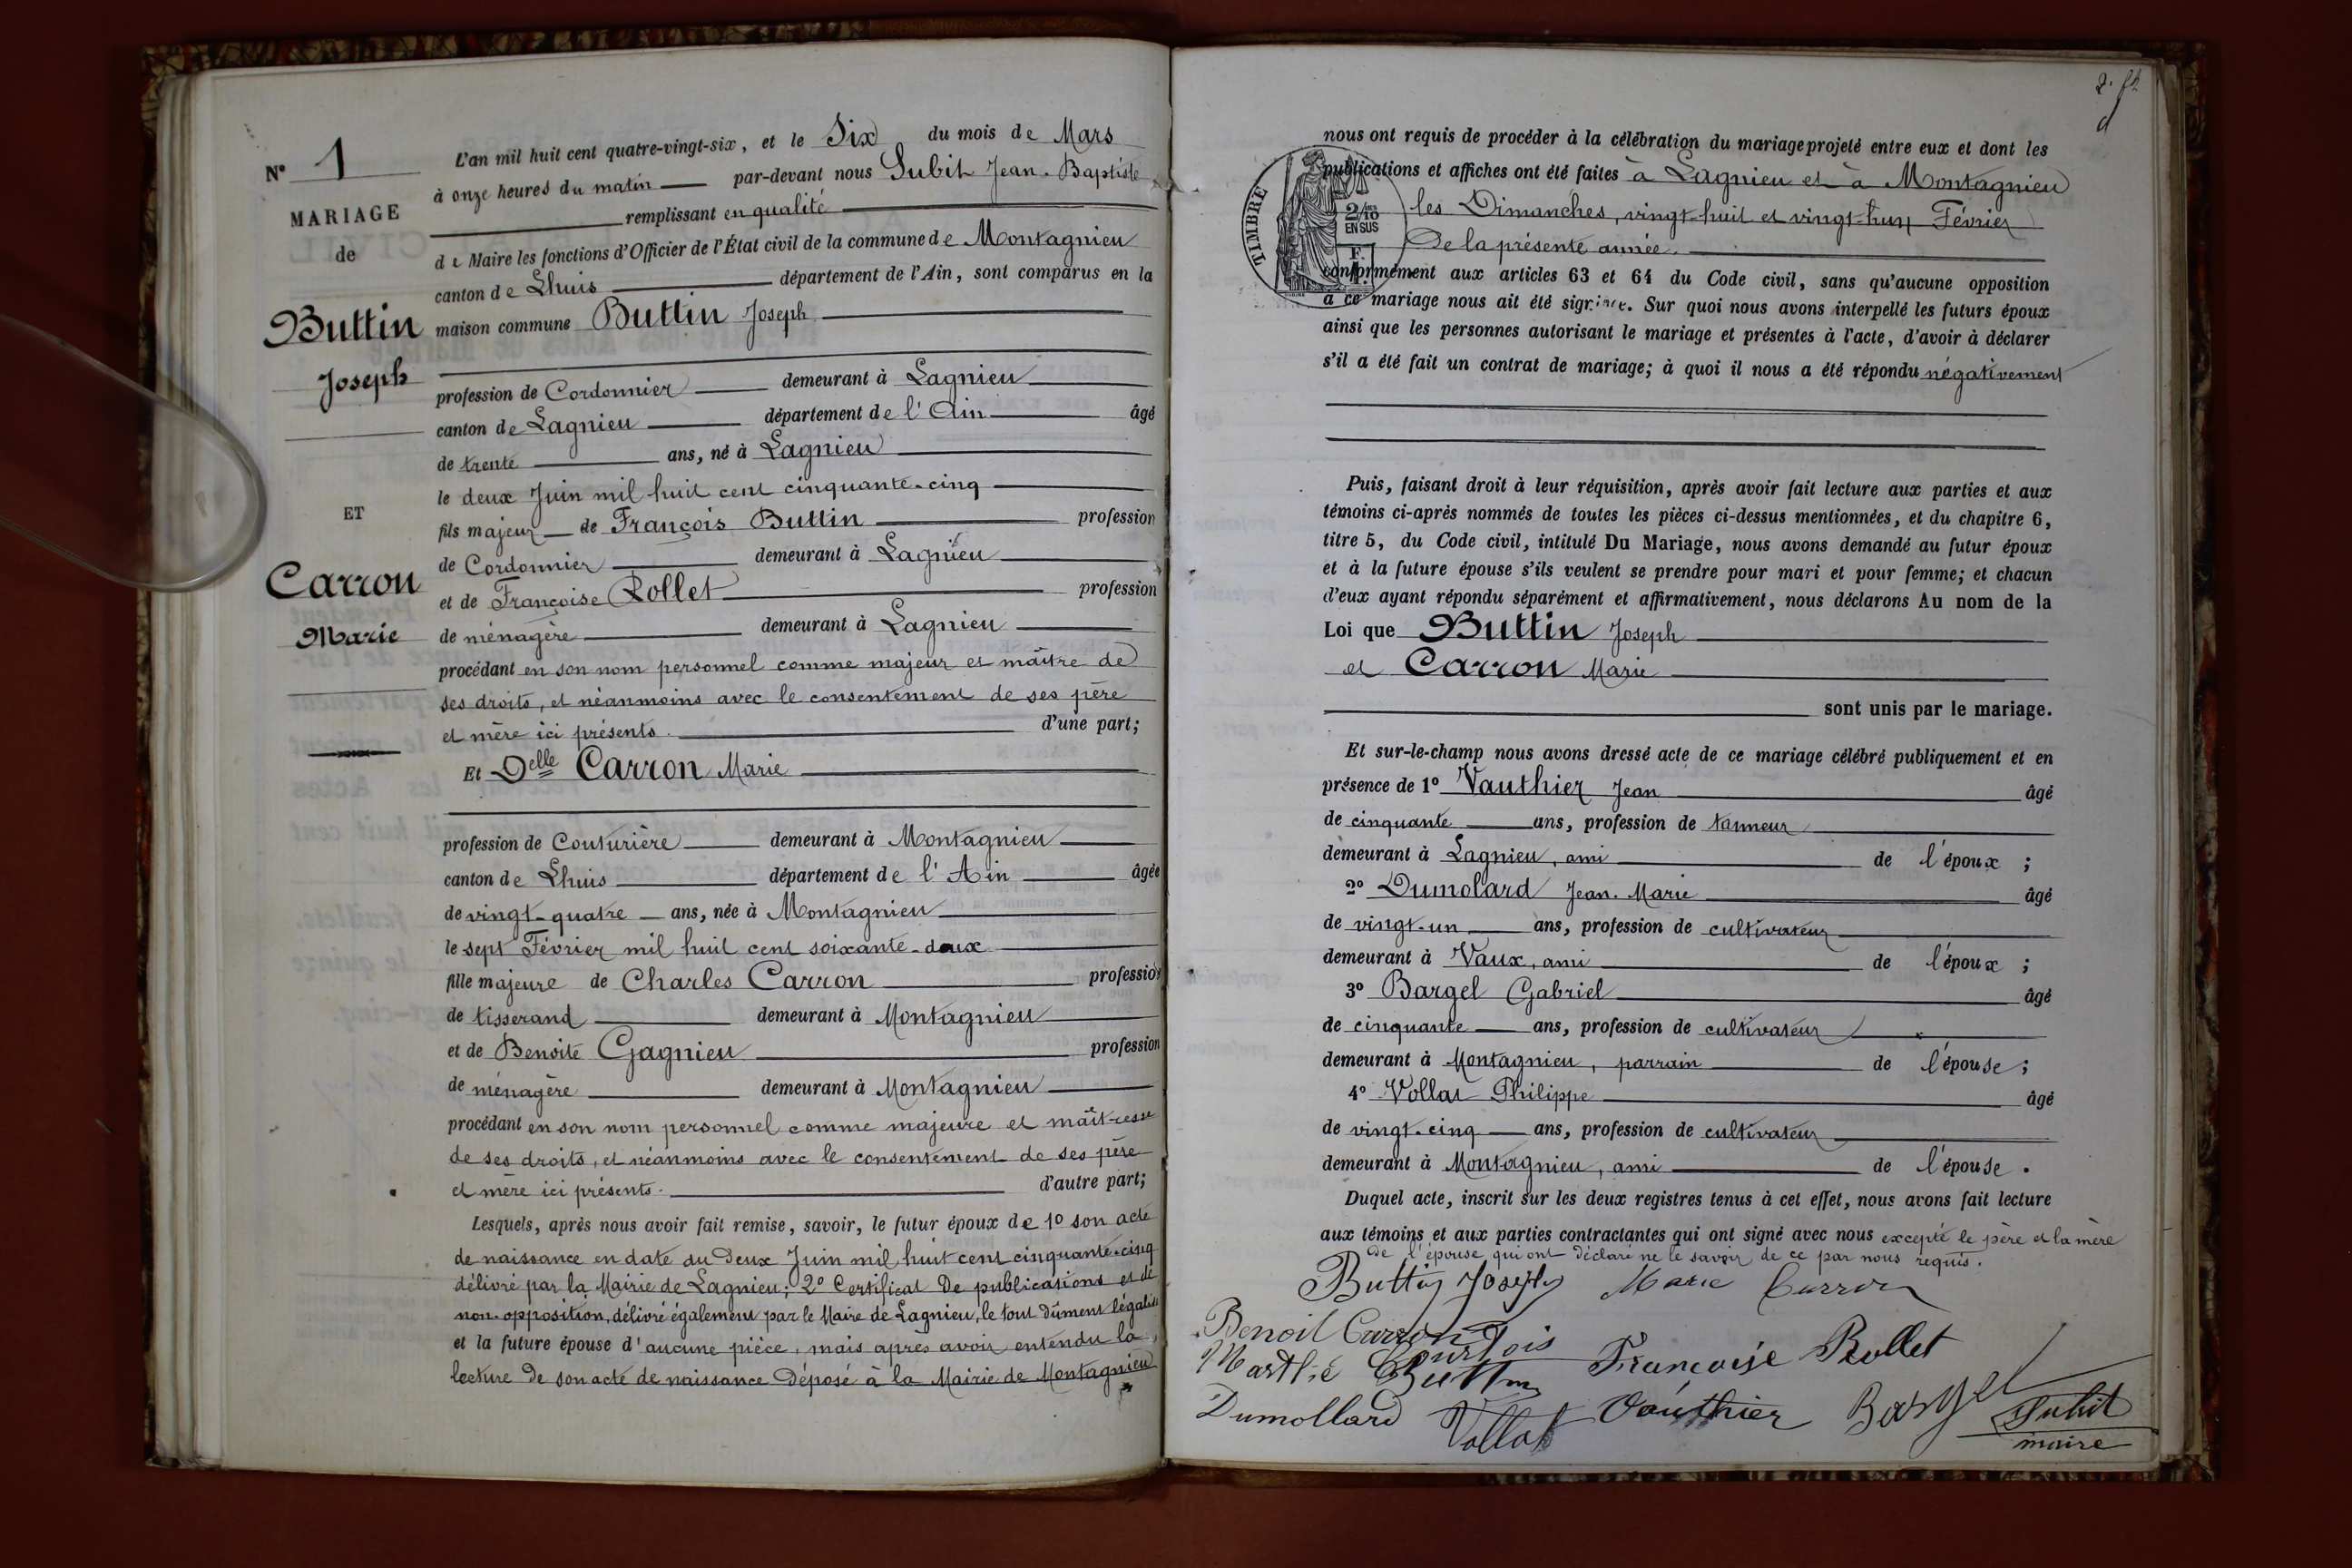 N° 1
MARIAGE
de
Buttin
Joseph
ET
Carron
Marie
L'an mil huit cent quatre-vingt-six, et le Six du mois de Mars
à onze heures du matin par-devant nous Subit Jean-Baptiste
remplissant en qualité
de Maire les fonctions d'Officier de l'État civil de la commune de Montagnieu
canton de Lhuis département de l'Ain, sont comparus en la
maison commune Buttin Joseph
profession de Cordonnier demeurant à Lagnieu
canton de Lagnieu département de l'Ain âgé
de trente ans, né à Lagnieu
le deux Juin mil huit cent cinquante-cinq
fils majeur de François Buttin profession
de Cordonnier demeurant à Lagnieu
et de Françoise Rollet profession
de ménagère demeurant à Lagnieu
procédant en son nom personnel comme majeur et maître de
ses droits, et néanmoins avec le consentement de ses père
et mère ici présents. d'une part;
Et Delle Carron Marie
profession de Couturière demeurant à Montagnieu
canton de Lhuis département de l'Ain âgée
de vingt-quatre ans, née à Montagnieu
le sept Février mil huit cent soixante-deux
fille majeure de Charles Carron profession
de tisserand demeurant à Montagnieu
et de Benoite Gagnieu profession
de ménagère demeurant à Montagnieu
procédant en son nom personnel comme majeure et maîtresse
de ses droits, et néanmoins avec le consentement de ses père
et mère ici présents. d'autre part;
Lesquels, après nous avoir fait remise, savoir, le futur époux de 1o son acte
de naissance en date du Deux Juin mil huit cent cinquante-cinq
délivré par la Mairie de Lagnieu; 2o Certificat De publications et de
non-opposition, délivré également par le Maire de Lagnieu, le tout dûment légalisé
et la future épouse d'aucune pièce, mais après avoir entendu la
lecture de son acte de naissance Déposé à la Mairie de Montagnieu
nous ont requis de procéder à la célébration du mariage projeté entre eux et dont les
publications et affiches ont été faites à Lagnieu et à Montagnieu
les Dimanches, vingt-huit et vingt-hun Février
De la présente année.
TIMBRE
2/10
EN SUS
conformément aux articles 63 et 64 du Code civil, sans qu'aucune opposition
à ce mariage nous ait été signifiée. Sur quoi nous avons interpellé les futurs époux
ainsi que les personnes autorisant le mariage et présentes à l'acte, d'avoir à déclarer
s'il a été fait un contrat de mariage; à quoi il nous a été répondu négativement
Puis, faisant droit à leur réquisition, après avoir fait lecture aux parties et aux
témoins ci-après nommés de toutes les pièces ci-dessus mentionnées, et du chapitre 6,
titre 5, du Code civil, intitulé Du Mariage, nous avons demandé au futur époux
et à la future épouse s'ils veulent se prendre pour mari et pour femme; et chacun
d'eux ayant répondu séparément et affirmativement, nous déclarons Au nom de la
Loi que Buttin Joseph
et Carron Marie
sont unis par le mariage.
Et sur-le-champ nous avons dressé acte de ce mariage célébré publiquement et en
présence de 1o Vauthier Jean âgé
de cinquante ans, profession de tanneur
demeurant à Lagnieu, ami de l'époux ;
2o Dumolard Jean-Marie âgé
de vingt-un ans, profession de cultivateur
demeurant à Vaux, ami de l'époux ;
3o Bargel Gabriel âgé
de cinquante ans, profession de cultivateur
demeurant à Montagnieu, parrain de l'épouse ;
4o Vollat Philippe âgé
de vingt-cinq ans, profession de cultivateur
demeurant à Montagnieu, ami de l'épouse .
Duquel acte, inscrit sur les deux registres tenus à cet effet, nous avons fait lecture
aux témoins et aux parties contractantes qui ont signé avec nous excepté le père et la mère
de l'épouse qui ont déclaré ne le savoir de ce par nous requis.
Buttin Joseph Marie Carron
Benoit Carron
Buttin Françoise Rollet
Dumollard Vollat Vauthier Bargel Subit
maire